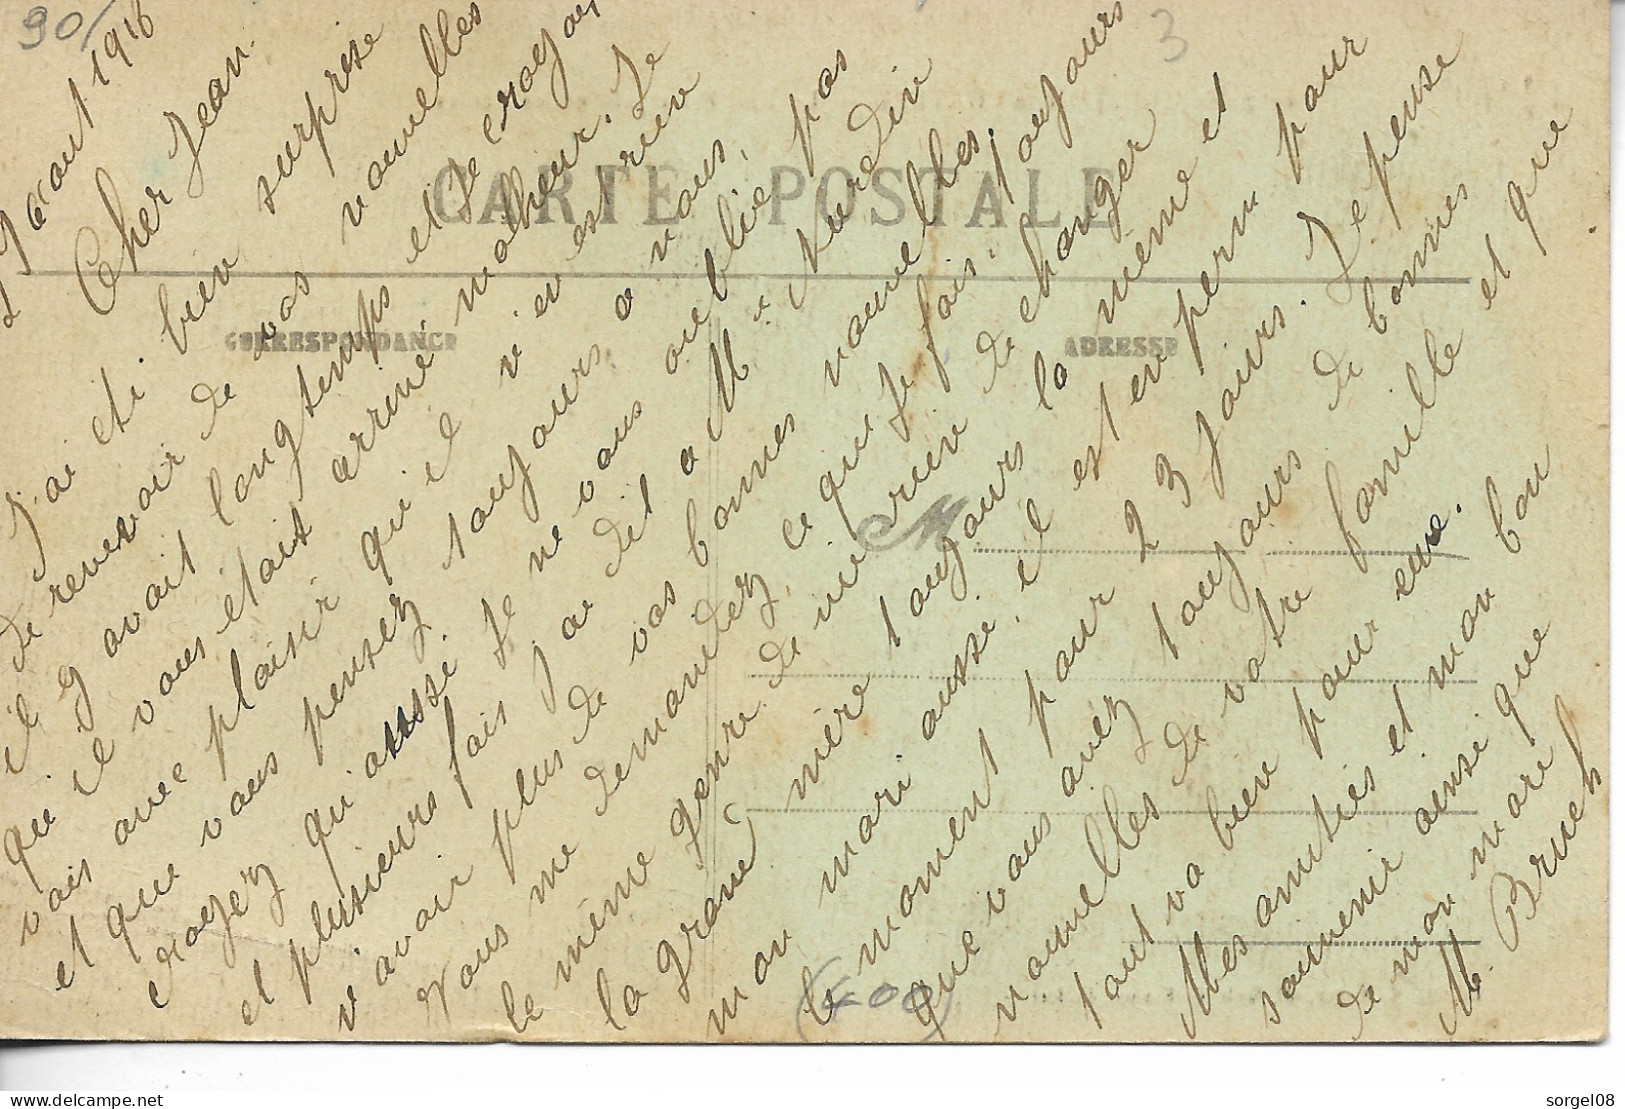 90
3
août 1916
Cher Jean.
J'ai eté bien surprise
de revevoir de vos nouvelles
il y avait longtemps et Je croyais
qu'il vous était arrivé malheur. Je
vois avec plaisir qu'il n'en est rien
et que vous pensez toujours a nous,
croyez qui aussi Je ne vous oublie pas
et plusieurs fois J'ai dit a Me
n'avoir plus de vos bonnes nouvelles.
Vous me demandez, ce que Je fais, toujours
le même genre de vie rien de changer
la grand mère toujours la même et
mon mari aussi, il est en perm pour
le moment pour 23 Jours. Je pense
que vous avez toujours de bonnes
nouvelles de votre famille et que
tout va bien pour eux.
Mes amitiés et mon bon
souvenir ainsi que
de mon mari
M. Bruch
CARTE POSTALE
CORRESPONDANCE
ADRESSE
sorgel08